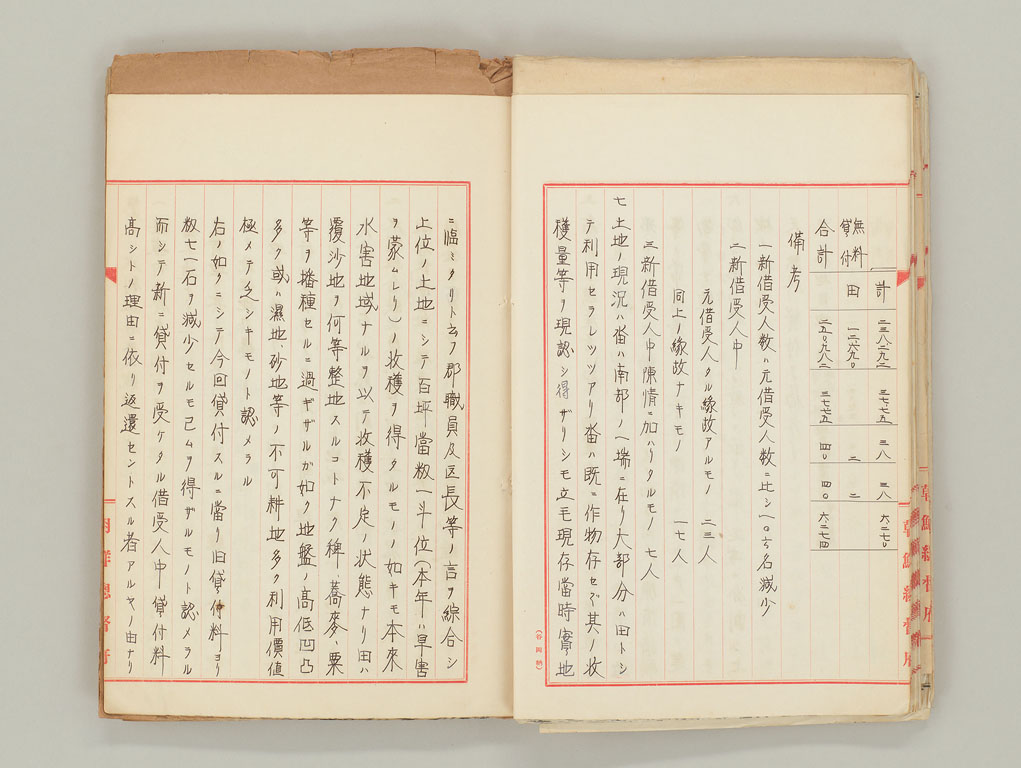 計 二三八二九二 三七七五 三八 三八 六二七〇
無料貸付 田 一二六九〇 二 二
合計 二五〇九八二 三七七五 四〇 四〇 六二七四
備考
一新借受人数ハ元借受人数ニ比シ一〇六名減少
二新借受人中
元借受人タル緣故アルモノ 二三人
同上ノ緣故ナキモノ 一七人
三新借受人中陳情ニ加ハリタルモノ 七人
七土地ノ現況ハ畓ハ南部ノ一端ニ在リ大部分ハ田トシ
テ利用セラレツツアリ畓ハ既ニ作物存セズ其ノ收
穫量等ヲ現認シ得ザリシモ立毛現存當時實地
ニ臨ミタリト云フ郡職員及区長等ノ言ヲ綜合シ
上位ノ土地ニシテ百坪當籾一斗位(本年ハ旱害
ヲ蒙ムレリ)ノ收穫ヲ得タルモノノ如キモ本來
水害地域ナルヲ以テ收穫不定ノ狀態ナリ田ハ
覆沙地ヲ何等整地スルコトナク稗、蕎麥、粟
等ヲ播種セルニ過ギザルガ如ク地盤ノ高低凹凸
多ク或ハ濕地、砂地等ノ不可耕地多ク利用價値
極メテ乏シキモノト認メラル
右ノ如クニシテ今回貸付スルニ當リ旧貸付料ヨリ
籾七一石ヲ減少セルモ已ムヲ得ザルモノト認メラル
而シテ新ニ貸付ヲ受ケタル借受人中貸付料
高シトノ理由ニ依リ返還セントスル者アルヤノ由ナリ
朝鮮總督府
朝鮮總督府
(谷岡納)